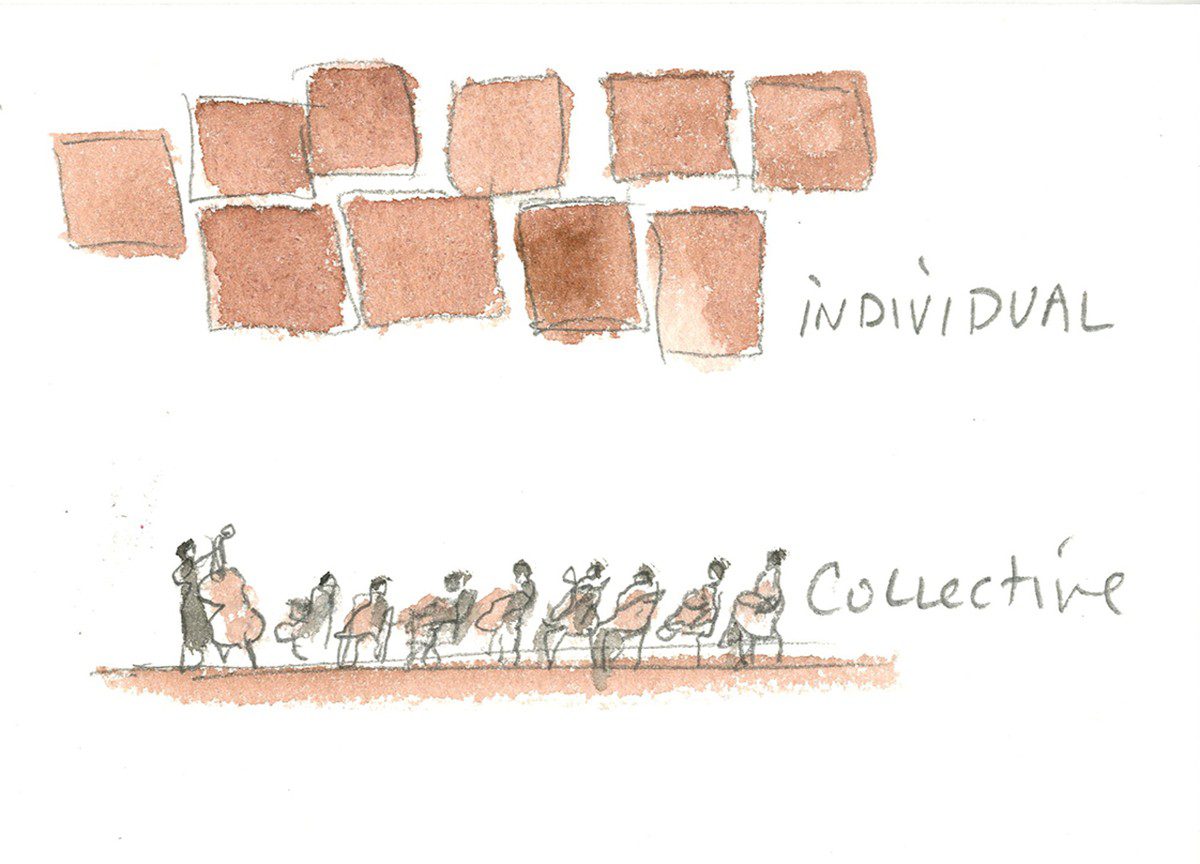 iNDiViDUAL
Collective